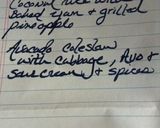 Coconut rice with
Baked yam & grilled
pineapple
Avocado coleslaw
with cabbage, Avo &
sour cream & spices